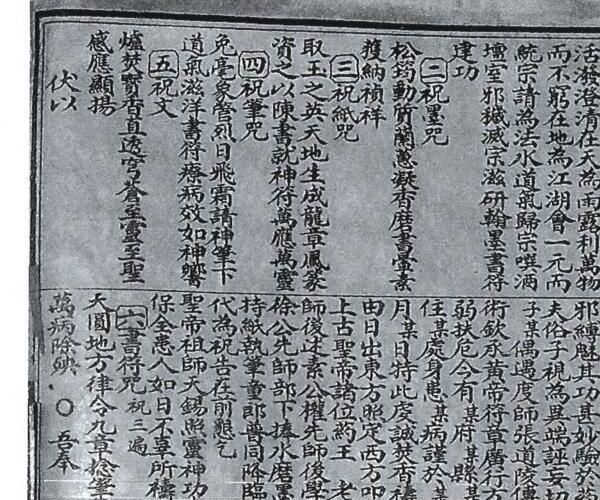 活潑澄清在天為雨露利萬物
而不窮在地為江湖會一元而
統宗請為法水道氣歸宗噀洒
壇室邪穢滅宗滋研翰墨書符
建功
二祝墨咒
松筠動質蘭蕙凝香磨書雲素
獲納禎祥
三祝紙咒
取玉之英天地生成龍章鳳篆
資之以陳書就神符萬應萬靈
四祝筆咒
兔毫象管烈日飛霜請神筆下
道氣滋洋書符療病效如神響
五祝文
爐焚寶香直透穹蒼至靈至聖
感應顯揚
伏以
邪纏魁其功其妙驗於
夫俗子視為異端誣妄
子某偶遇度師張道陵
術欽承黃帝符章廣行
弱扶危今有某府某縣某
住某處身患某病謹於
月某日特此虔誠焚香
由日出東方照定西方印
上古聖帝諸位約王 老
師後述素公權先師後學
徐公先師部下捧水磨
持紙執筆童郎普同降臨
代為祝告在前懇乞
聖帝祖師天錫照靈神功
保全患人如日不辜所禱
六書符咒 祝三遍
天圓地方律令九章捻筆
萬病除殃。〇吾奉